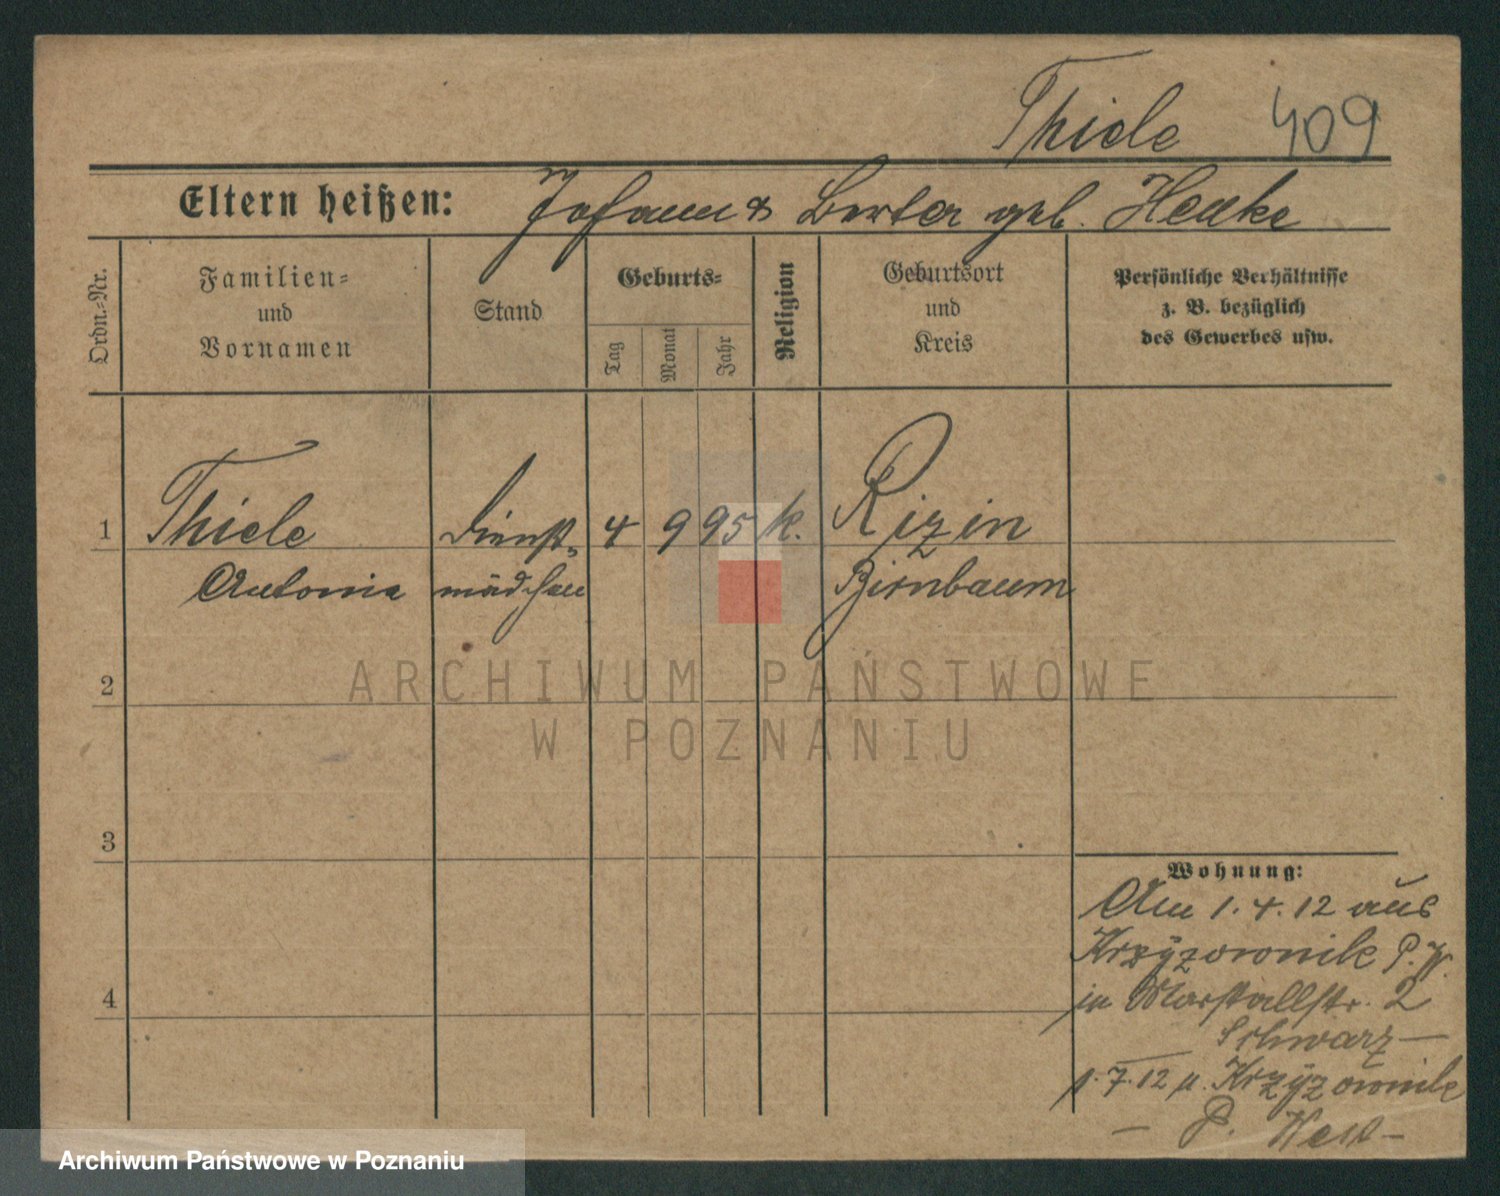 Thiele 409
Eltern heißen: Johann & Berta geb. Henke
Ordn.-Nr.
Familien-
und
Vornamen
Stand
Geburts-
Tag
Monat
Jahr
Religion
Geburtsort
und
Kreis
Persönliche Verhältnisse
z. B. bezüglich
des Gewerbes usw.
1 Thiele Dienst- 4 9 95 k. Rizin
Antonie mädchen Birnbaum
2
3
4
Wohnung:
Am 1.4.12 aus
Krzyzownik P. W.
in Marstallstr. 2
Schwarz —
1.7.12 n. Krzyzownik
— P. West —
ARCHIWUM PAŃSTWOWE
W POZNANIU
Archiwum Państwowe w Poznaniu